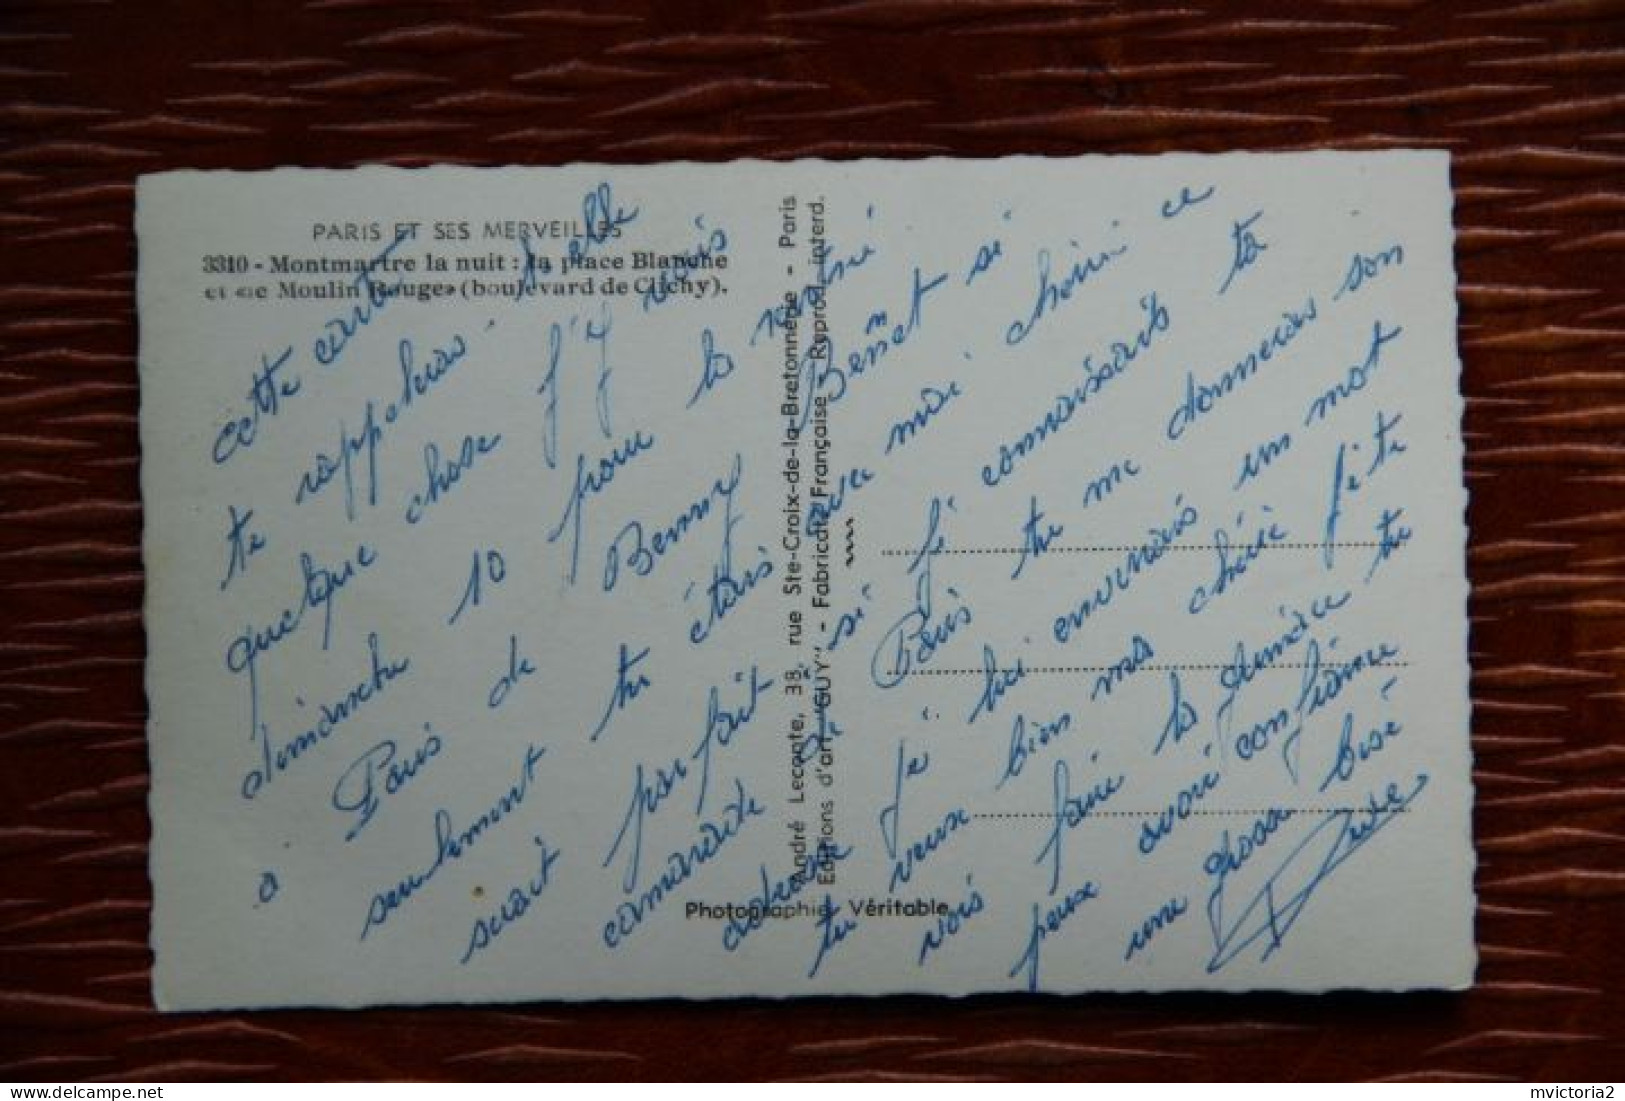 PARIS ET SES MERVEILLES
3310 - Montmartre la nuit : la place Blanche
et «le Moulin Rouge» (boulevard de Clichy).
cette carte
te rappelera - t-elle
quelque chose j'y vais
dimanche 10 pour la
à Paris de Benny Benêt si
seulement tu étais avec moi chérie ce
serait parfait si je connaissais ta
camarade de Paris tu me donneras son
adresse je lui enverrais un mot
tu veux bien ma chérie je te
vois faire la grimace tu
peux avoir confiance
une grosse bise
André Leconte, 38, rue Ste-Croix-de-la-Bretonnerie - Paris
Editions d'art "GUY" - Fabricat. Française Reprod. interd.
Photographie Véritable
mvictoria2